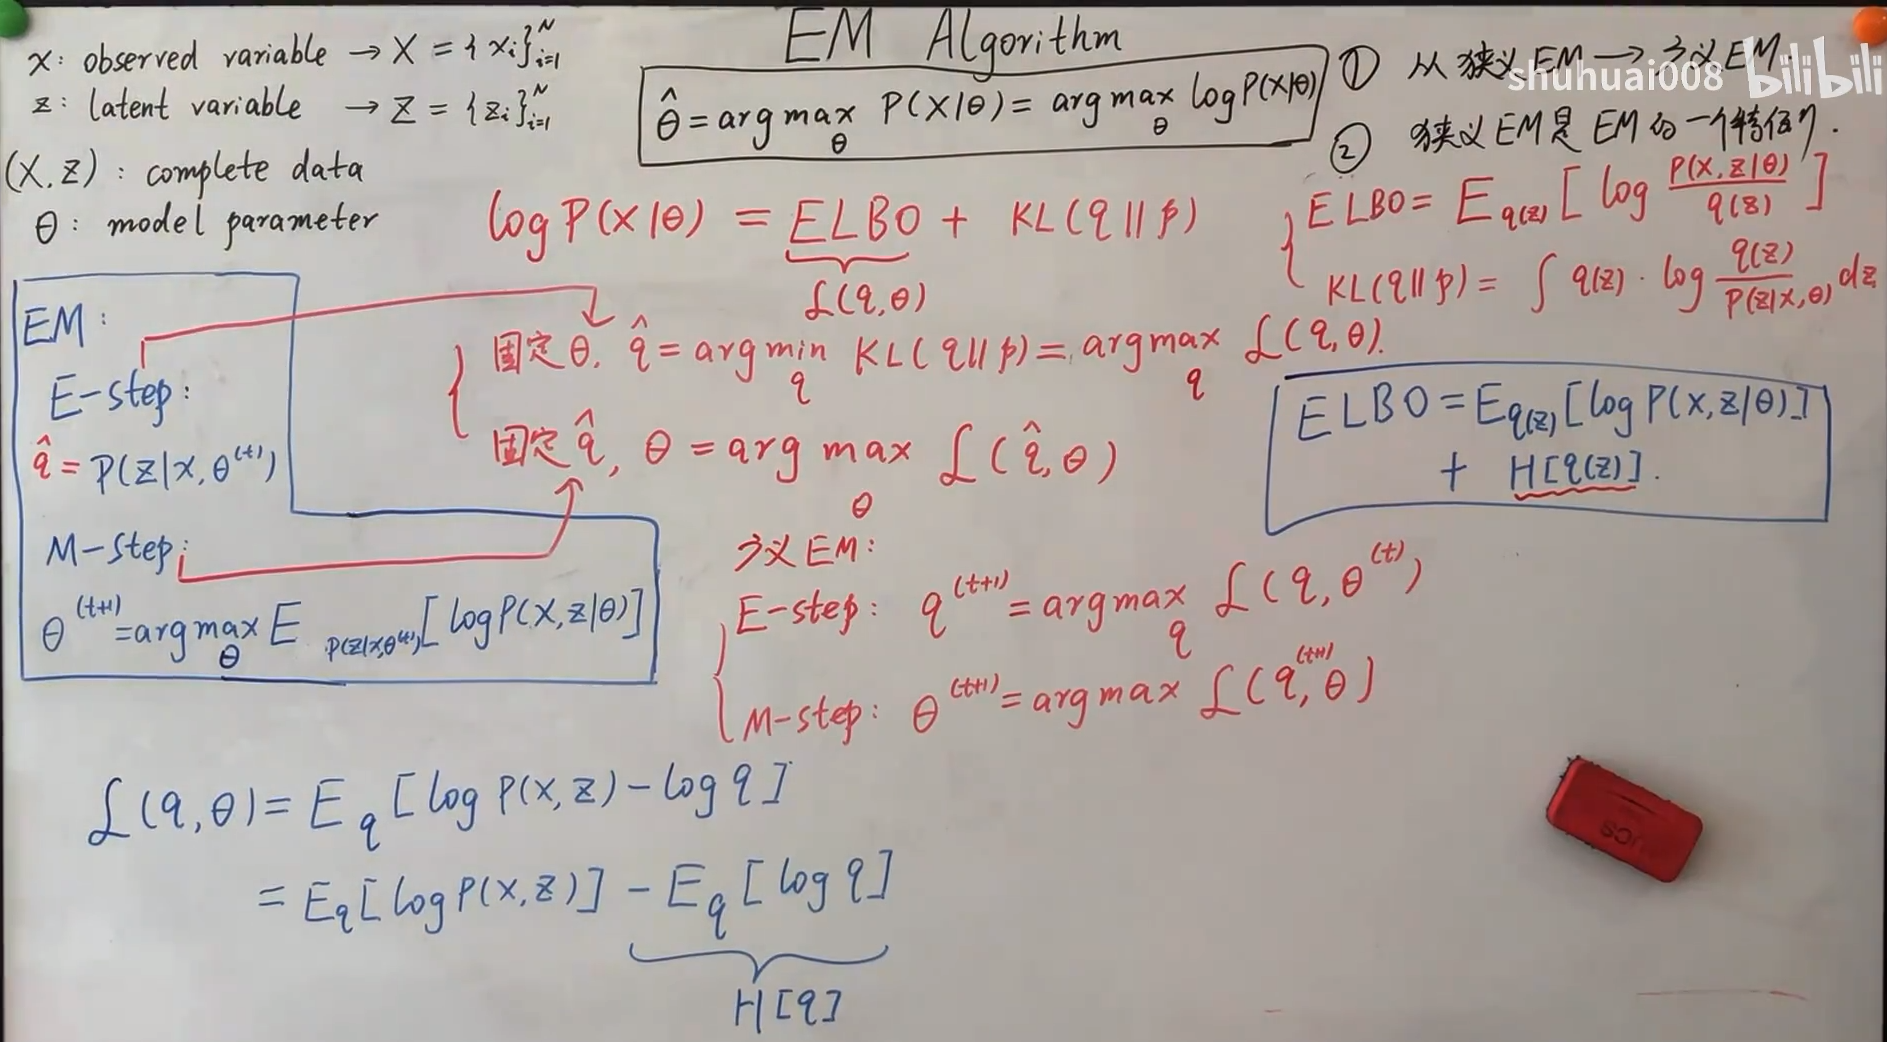 EM Algorithm
x: observed variable → X = {xᵢ}ᵢ₌₁ᴺ
z: latent variable → Z = {zᵢ}ᵢ₌₁ᴺ
(X, Z): complete data
θ: model parameter
θ̂ = arg max_θ P(X|θ) = arg max_θ log P(X|θ)
① 从狭义EM → 广义EM.
② 狭义EM是EM的一个特例.
shuhuai008 bilibili
log P(X|θ) = ELBO + KL(q||p)
L(q,θ)
ELBO = E_q(z) [log P(X,Z|θ) / q(z)]
KL(q||p) = ∫ q(z) · log q(z) / P(z|X,θ) dz
固定θ, q̂ = arg min_q KL(q||p) = arg max_q L(q,θ).
固定q̂, θ = arg max_θ L(q̂,θ)
EM:
E-step:
q̂ = P(Z|X,θ⁽ᵗ⁾)
M-step:
θ⁽ᵗ⁺¹⁾ = arg max_θ E_P(Z|X,θ⁽ᵗ⁾) [log P(X,Z|θ)]
ELBO = E_q(z) [log P(X,Z|θ)]
+ H[q(z)].
广义EM:
E-step: q⁽ᵗ⁺¹⁾ = arg max_q L(q,θ⁽ᵗ⁾)
M-step: θ⁽ᵗ⁺¹⁾ = arg max L(q⁽ᵗ⁺¹⁾,θ)
L(q,θ) = E_q [log P(X,Z) − log q]
= E_q [log P(X,Z)] − E_q [log q]
H[q]